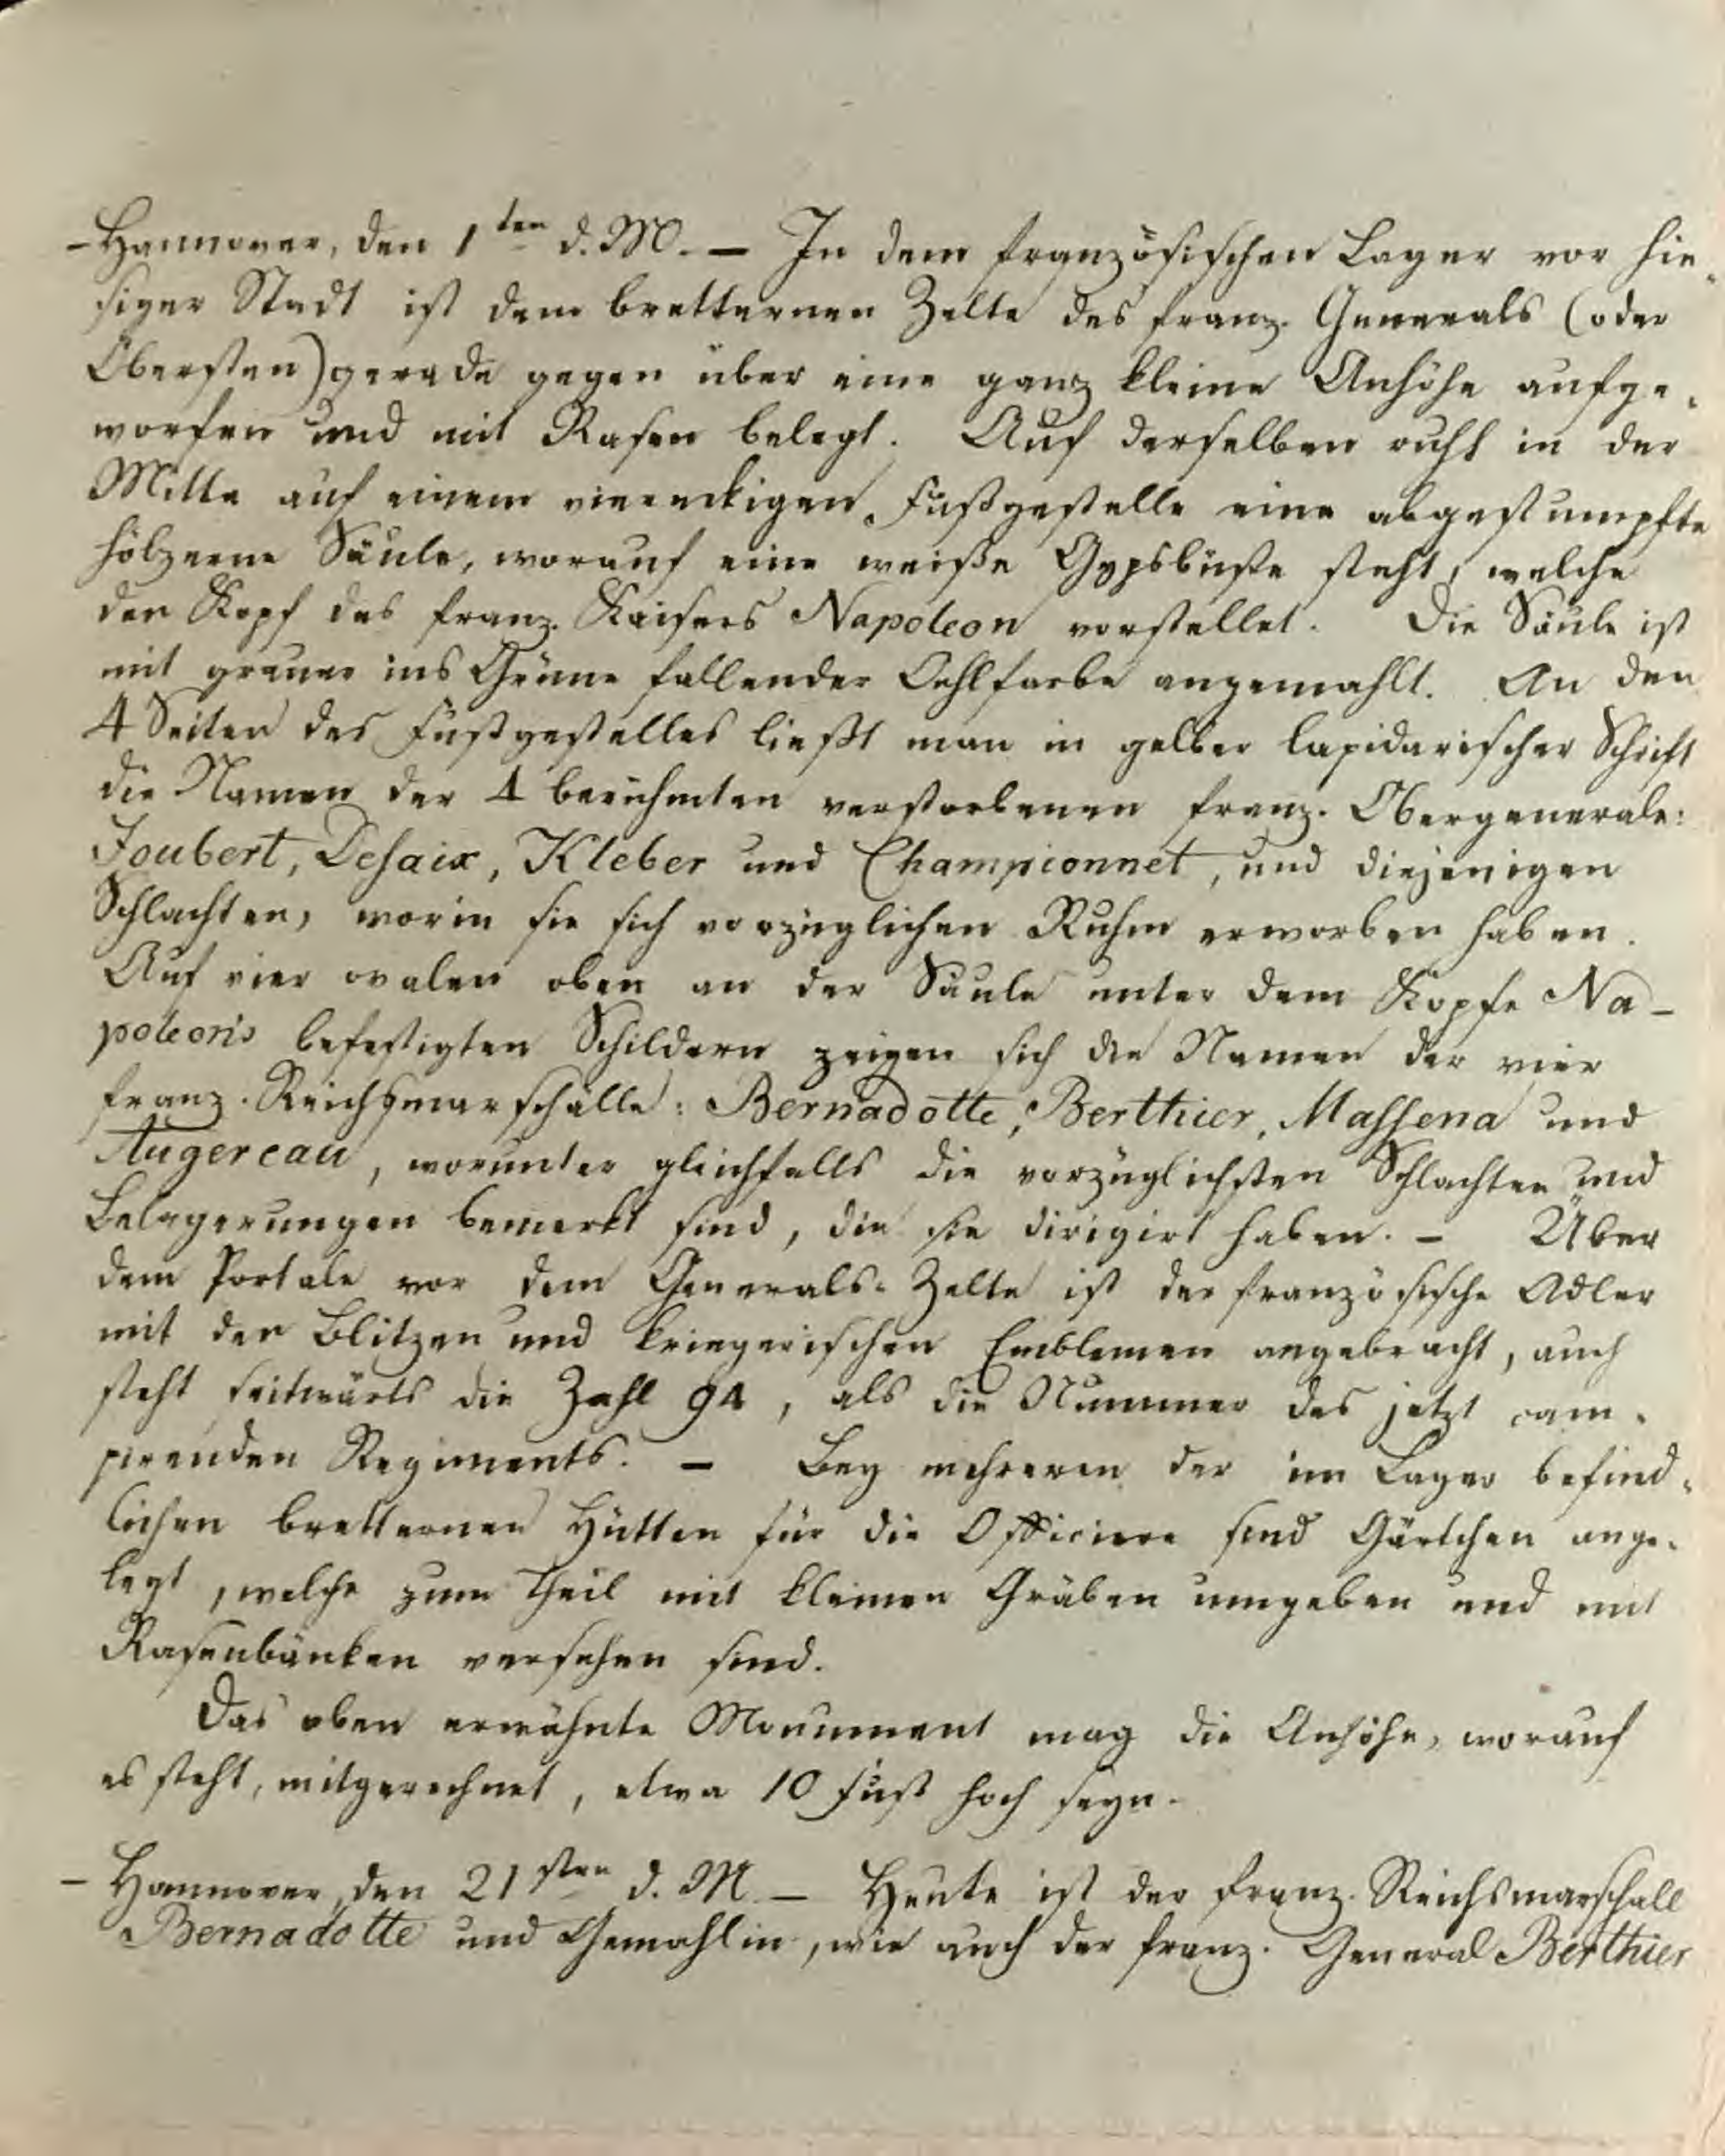 - Hannover, den 1ten d. M. - In dem französischen Lager vor hie-
siger Stadt ist dem bretternen Zelte des franz. Generals (oder
Obersten) gerade gegen über eine ganz kleine Anhöhe aufge-
worfen und mit Rasen belegt. Auf derselben ruht in der
Mitte auf einem viereckigen Fußgestelle eine abgestumpfte
hölzerne Säule, worauf eine weiße Gypsbüste steht, welche
den Kopf des franz. Kaisers Napoleon vorstellet. Die Säule ist
mit grauer ins Grüne fallender Oehlfarbe angemahlt. An den
4 Seiten des Fußgestelles ließt man in gelber lapidarischer Schrift
die Namen der 4 berühmten verstorbenen franz. Obergenerale:
Joubert, Desaix, Kleber und Championnet, und diejenigen
Schlachten, worin sie sich vorzüglichen Ruhm erworben haben.
Auf vier ovalen oben an der Säule unter dem Kopfe Na-
poleon's befestigten Schildern zeigen sich die Namen der vier
franz. Reichsmarschälle: Bernadotte, Berthier, Massena und
Augereau, worunter gleichfalls die vorzüglichsten Schlachten und
Belagerungen bemerkt sind, die sie dirigirt haben. - Über
dem Portale vor dem Generals-Zelte ist der französische Adler
mit den Blitzen und kriegerischen Emblemen angebracht, auch
steht seitwärts die Zahl 94, als die Nummer des jetzt cam-
pirenden Regiments. - Bey mehreren der im Lager befind-
lichen bretternen Hütten für die Officiere sind Gärtchen ange-
legt, welche zum Theil mit kleinen Gräben umgeben und mit
Rasenbänken versehen sind.
Das oben erwähnte Monument mag die Anhöhe, worauf
es steht, mitgerechnet, etwa 10 Fuß hoch seyn.
- Hannover, den 21sten d. M. - Heute ist der franz. Reichsmarschall
Bernadotte und Gemahlin, wie auch der franz. General Berthier